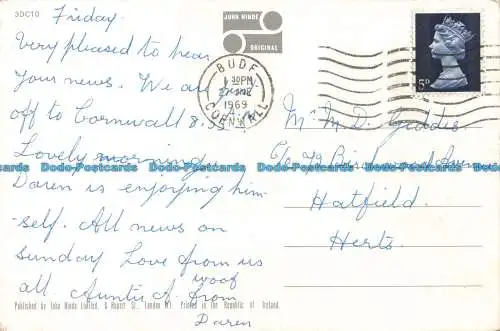 3DC10
Friday
Very pleased to hear
Your news. We are
off to Cornwall 8.35
Lovely morning
Daren is enjoying him-
self. All news on
Sunday Love from us
all Auntie from woof
Daren
JOHN HINDE
ORIGINAL
BUDE
1 30PM
27 JNE
1969
CORNWALL
5D
M M D Geddes
C/o 79 Avenue
Hatfield.
Herts.
Dodo-Postcards Dodo-Postcards Dodo-Postcards Dodo-Postcards
Published by John Hinde Limited, 6 Rupert St., London W1. Printed in the Republic of Ireland.